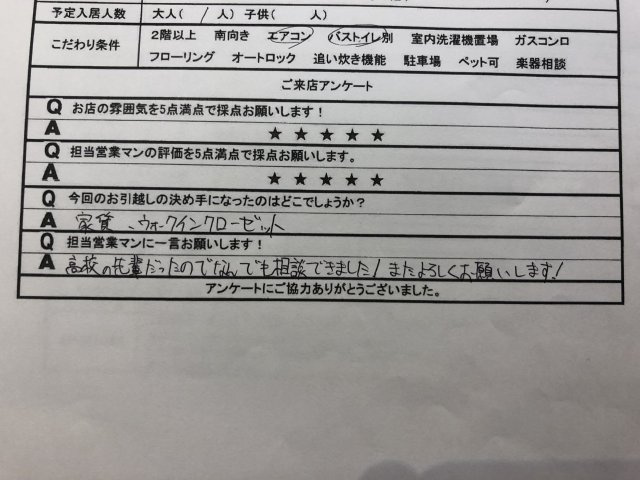 予定入居人数 大人( / 人) 子供( 人)
こだわり条件 2階以上 南向き エアコン バストイレ別 室内洗濯機置場 ガスコンロ
フローリング オートロック 追い炊き機能 駐車場 ペット可 楽器相談
ご来店アンケート
Q お店の雰囲気を5点満点で採点お願いします!
A ★ ★ ★ ★ ★
Q 担当営業マンの評価を5点満点で採点お願いします。
A ★ ★ ★ ★ ★
Q 今回のお引越しの決め手になったのはどこでしょうか?
A 家賃、ウォークインクローゼット
Q 担当営業マンに一言お願いします!
A 高校の先輩だったのでなんでも相談できました!またよろしくお願いします!
アンケートにご協力ありがとうございました。